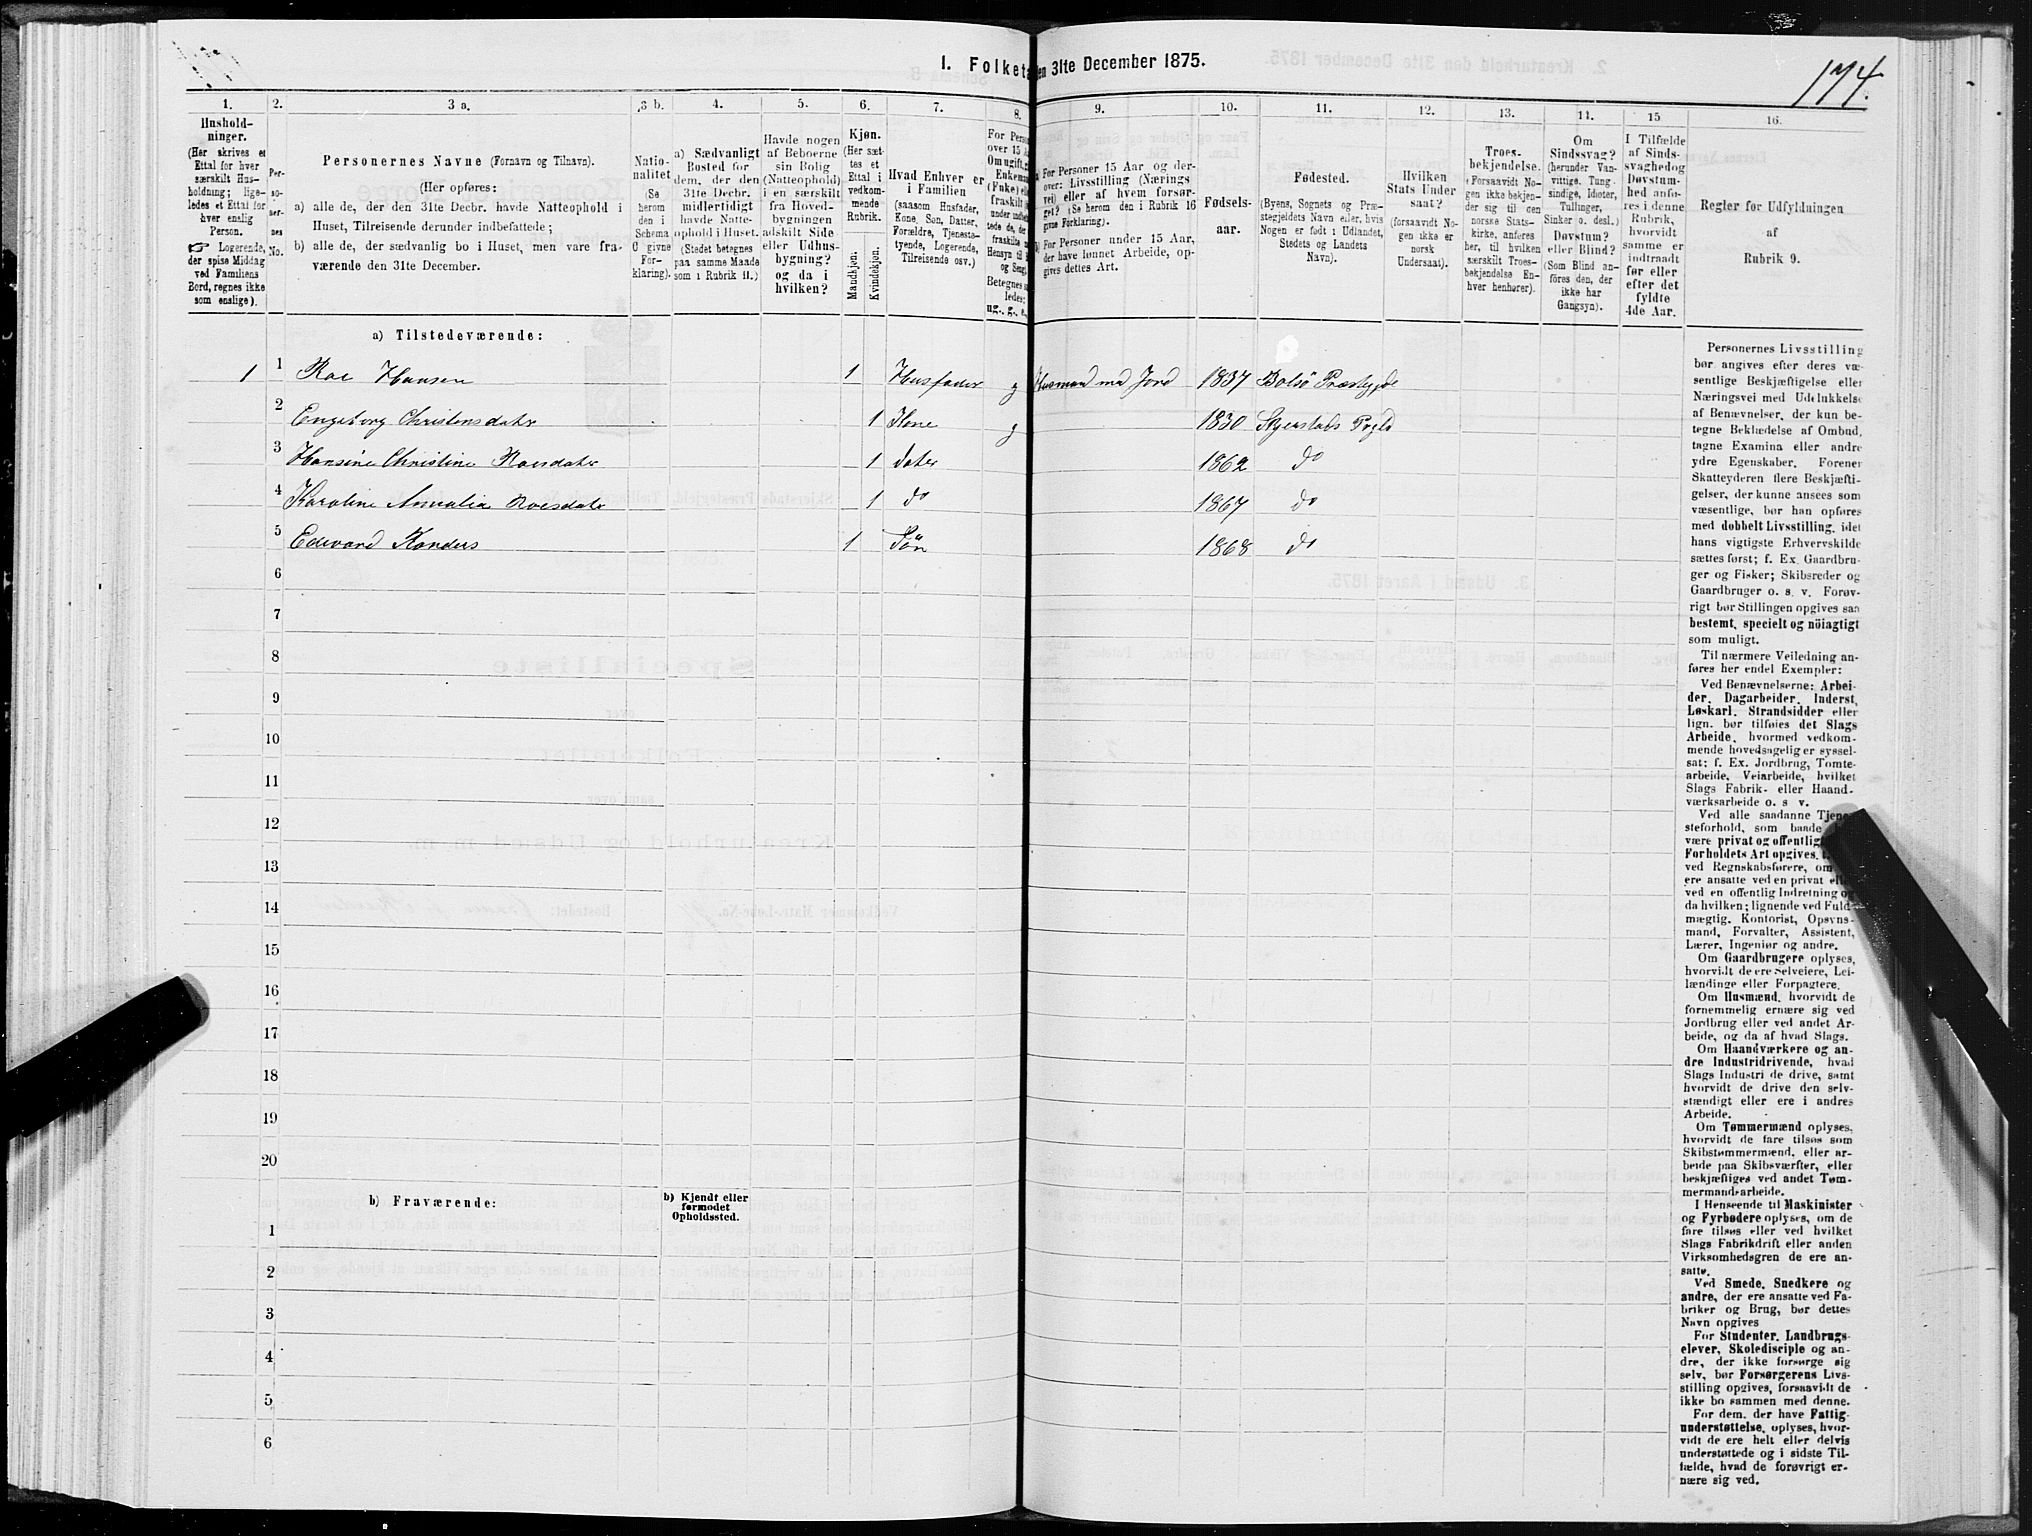 174.
I. Folketa en 31te December 1875.
1. 2. 3 a. 3 b. 4. 5. 6. 7. 8. 9. 10. 11. 12. 13. 14. 15 16.
Hushold-
ninger.
(Her skrives et
Ettal for hver
særskilt Hus-
holdning; lige-
ledes et Ettal for
hver enslig
Person.
☞ Logerende,
der spise Middag
ved Familiens
Bord, regnes ikke
som enslige).
Per-
so-
ner-
nes
No.
Personernes Navne (Fornavn og Tilnavn).
(Her opføres:
a) alle de, der den 31te Decbr. havde Natteophold i
Huset, Tilreisende derunder indbefattede;
b) alle de, der sædvanlig bo i Huset, men vare fra-
værende den 31te December.
Natio-
nalitet
(Se
herom
den i
Schema
C givne
For-
klaring).
a) Sædvanligt
Bosted for
dem, der den
31te Decbr.
midlertidigt
havde Natte-
ophold i Huset.
(Stedet betegnes
paa samme Maade
som i Rubrik 11.)
Havde nogen
af Beboerne
sin Bolig
(Natteophold)
i en særskilt
fra Hoved-
bygningen
adskilt Side
eller Udhus-
bygning?
og da i
hvilken?
Kjøn.
(Her sæt-
tes et
Ettal i
vedkom-
mende
Rubrik.
Mandkjøn.
Kvindekjøn.
Hvad Enhver er
i Familien
(saasom Husfader,
Kone, Søn, Datter,
Forældre, Tjeneste-
tyende, Logerende,
Tilreisende osv.).
For Perso
over 15 A
Om ugift, g
Enkema
(Fnke) el
fraskilt
under indbe
tede de, de
fraskilte
Hensyn til B
og Seng.
Betegnes s
ledes:
ug., g., e.,
For Personer 15 Aar og der-
over: Livsstilling (Nærings
vei) eller af hvem forsør-
get? (Se herom den i Rubrik 16
givne Forklaring).
For Personer under 15 Aar,
der have lønnet Arbeide, op-
gives dettes Art.
Fødsels-
aar.
Fødested.
(Byens, Sognets og Præ-
stegjeldets Navn eller, hvis
Nogen er født i Udlandet,
Stedets og Landets
Navn).
Hvilken
Stats Under
saat?
(forsaavidt No-
gen ikke er
norsk
Undersaat).
Troes-
bekjendelse.
(Forsaavidt No-
gen ikke bekjen-
der sig til den
norske Stats-
kirke, anføres
her, til hvilken
særskilt Troes-
bekjendelse En-
hver henhører).
Om
Sindssvag?
(herunder Van-
vittige, Tung-
sindige, Idioter,
Tullinger,
Sinker o. desl.)
Døvstum?
eller Blind?
(Som Blind an-
føres den, der
ikke har
Gangsyn).
I Tilfælde
af Sinds-
svaghed og
Døvstum-
hed anfø-
res i denne
Rubrik,
hvorvidt
samme er
indtraadt
før eller
efter det
fyldte
4de Aar.
Regler før Udfyldningen
af
Rubrik 9.
a) Tilstedeværende:
1 1 Roe Hansen 1 Husfader g Husmand med Jord 1837 Bolsö Præstegjd
2 Engeborg Christensdatr 1 Kone g 1830 Skjerstads Prgld
3 Hansine Christine Roesdatr 1 dater 1862 do
4 Karoline Amalia Roesdatr 1 do 1867 do
5 Edevard 1 Sön 1868 do
6
7
8
9
10
11
12
13
14
15
16
17
18
19
20
b) Fraværende:
b) Kjendt eller
formodet
Opholdssted.
1
2
3
4
5
6
Personernes Livsstilling
bør angives efter deres væ-
sentlige Beskjæftigelse eller
Næringsvei med Udelukkelse
af Benævnelser, der kun be-
tegne Beklædelse af Ombud,
tagne Examina eller andre
ydre Egenskaber. Forener
Skatteyderen flere Beskjæfti-
gelser, der kunne ansees som
væsentlige, bør han opføres
med dobbelt Livsstilling, idet
hans vigtigste Erhvervskilde
sættes først; f. Ex. Gaardbru-
ger og Fisker; Skibsreder og
Gaardbruger o. s. v. Forøv-
rigt bør Stillingen opgives saa
bestemt, specielt og nöiagtigt
som muligt.
Til nærmere Veiledning an-
føres her endel Exempler:
Ved Benævnelserne: Arbei-
der, Dagarbeider, Inderst,
Løskarl, Strandsidder eller
lign. bør tilføies det Slags
Arbeide, hvormed vedkom-
mende hovedsagelig er syssel-
sat; f. Ex. Jordbrug, Tomte-
arbeide, Veiarbeide, hvilket
Slags Fabrik- eller Haand-
værksarbeide o. s v.
Ved alle saadanne Tjene-
steforhold, som baade
være privat og offentlig
Forholdets Art opgives,
ved Regnskabsførere, om
ere ansatte ved en privat
ved en offentlig Indretning og
da hvilken; lignende ved Fuld-
mægtig, Kontorist, Opsyns-
mand, Forvalter, Assistent,
Lærer, Ingeniør og andre.
Om Gaardbrugere oplyses,
hvorvidt de ere Selveiere, Lei-
lændinge eller Forpagtere.
Om Husmænd, hvorvidt de
fornemmelig ernære sig ved
Jordbrug eller ved andet Ar-
beide, og da af hvad Slags.
Om Haandværkere og an-
dre Industridrivende, hvad
Slags Industri de drive, samt
hvorvidt de drive den selv-
stændigt eller ere i andres
Arbeide.
Om Tømmermænd oplyses,
hvorvidt de fare tilsøs som
Skibstømmermænd, eller ar-
beide paa Skibsværfter, eller
beskjæftiges ved andet Tøm-
mermandsarbeide.
I Henseende til Maskinister
og Fyrbødere oplyses, om de
fare tilsøs eller ved hvilket
Slags Fabrikdrift eller anden
Virksomhedsgren de ere an-
satte.
Ved Smede, Snedkere og
andre, der ere ansatte ved Fa-
briker og Brug, bør dettes
Navn opgives
For Studenter, Landbrugs-
elever, Skoledisciple og an-
dre, der ikke forsørge sig
selv, bør Forsørgerens Livs-
stilling opgives, forsaavidt de
ikke bo sammen med denne.
For dem, der have Fattig-
understøttelse, oplyses, hvor-
vidt de ere helt eller delvis
understøttede og i sidste Til-
fælde, hvad de forøvrigt er-
nære sig ved.